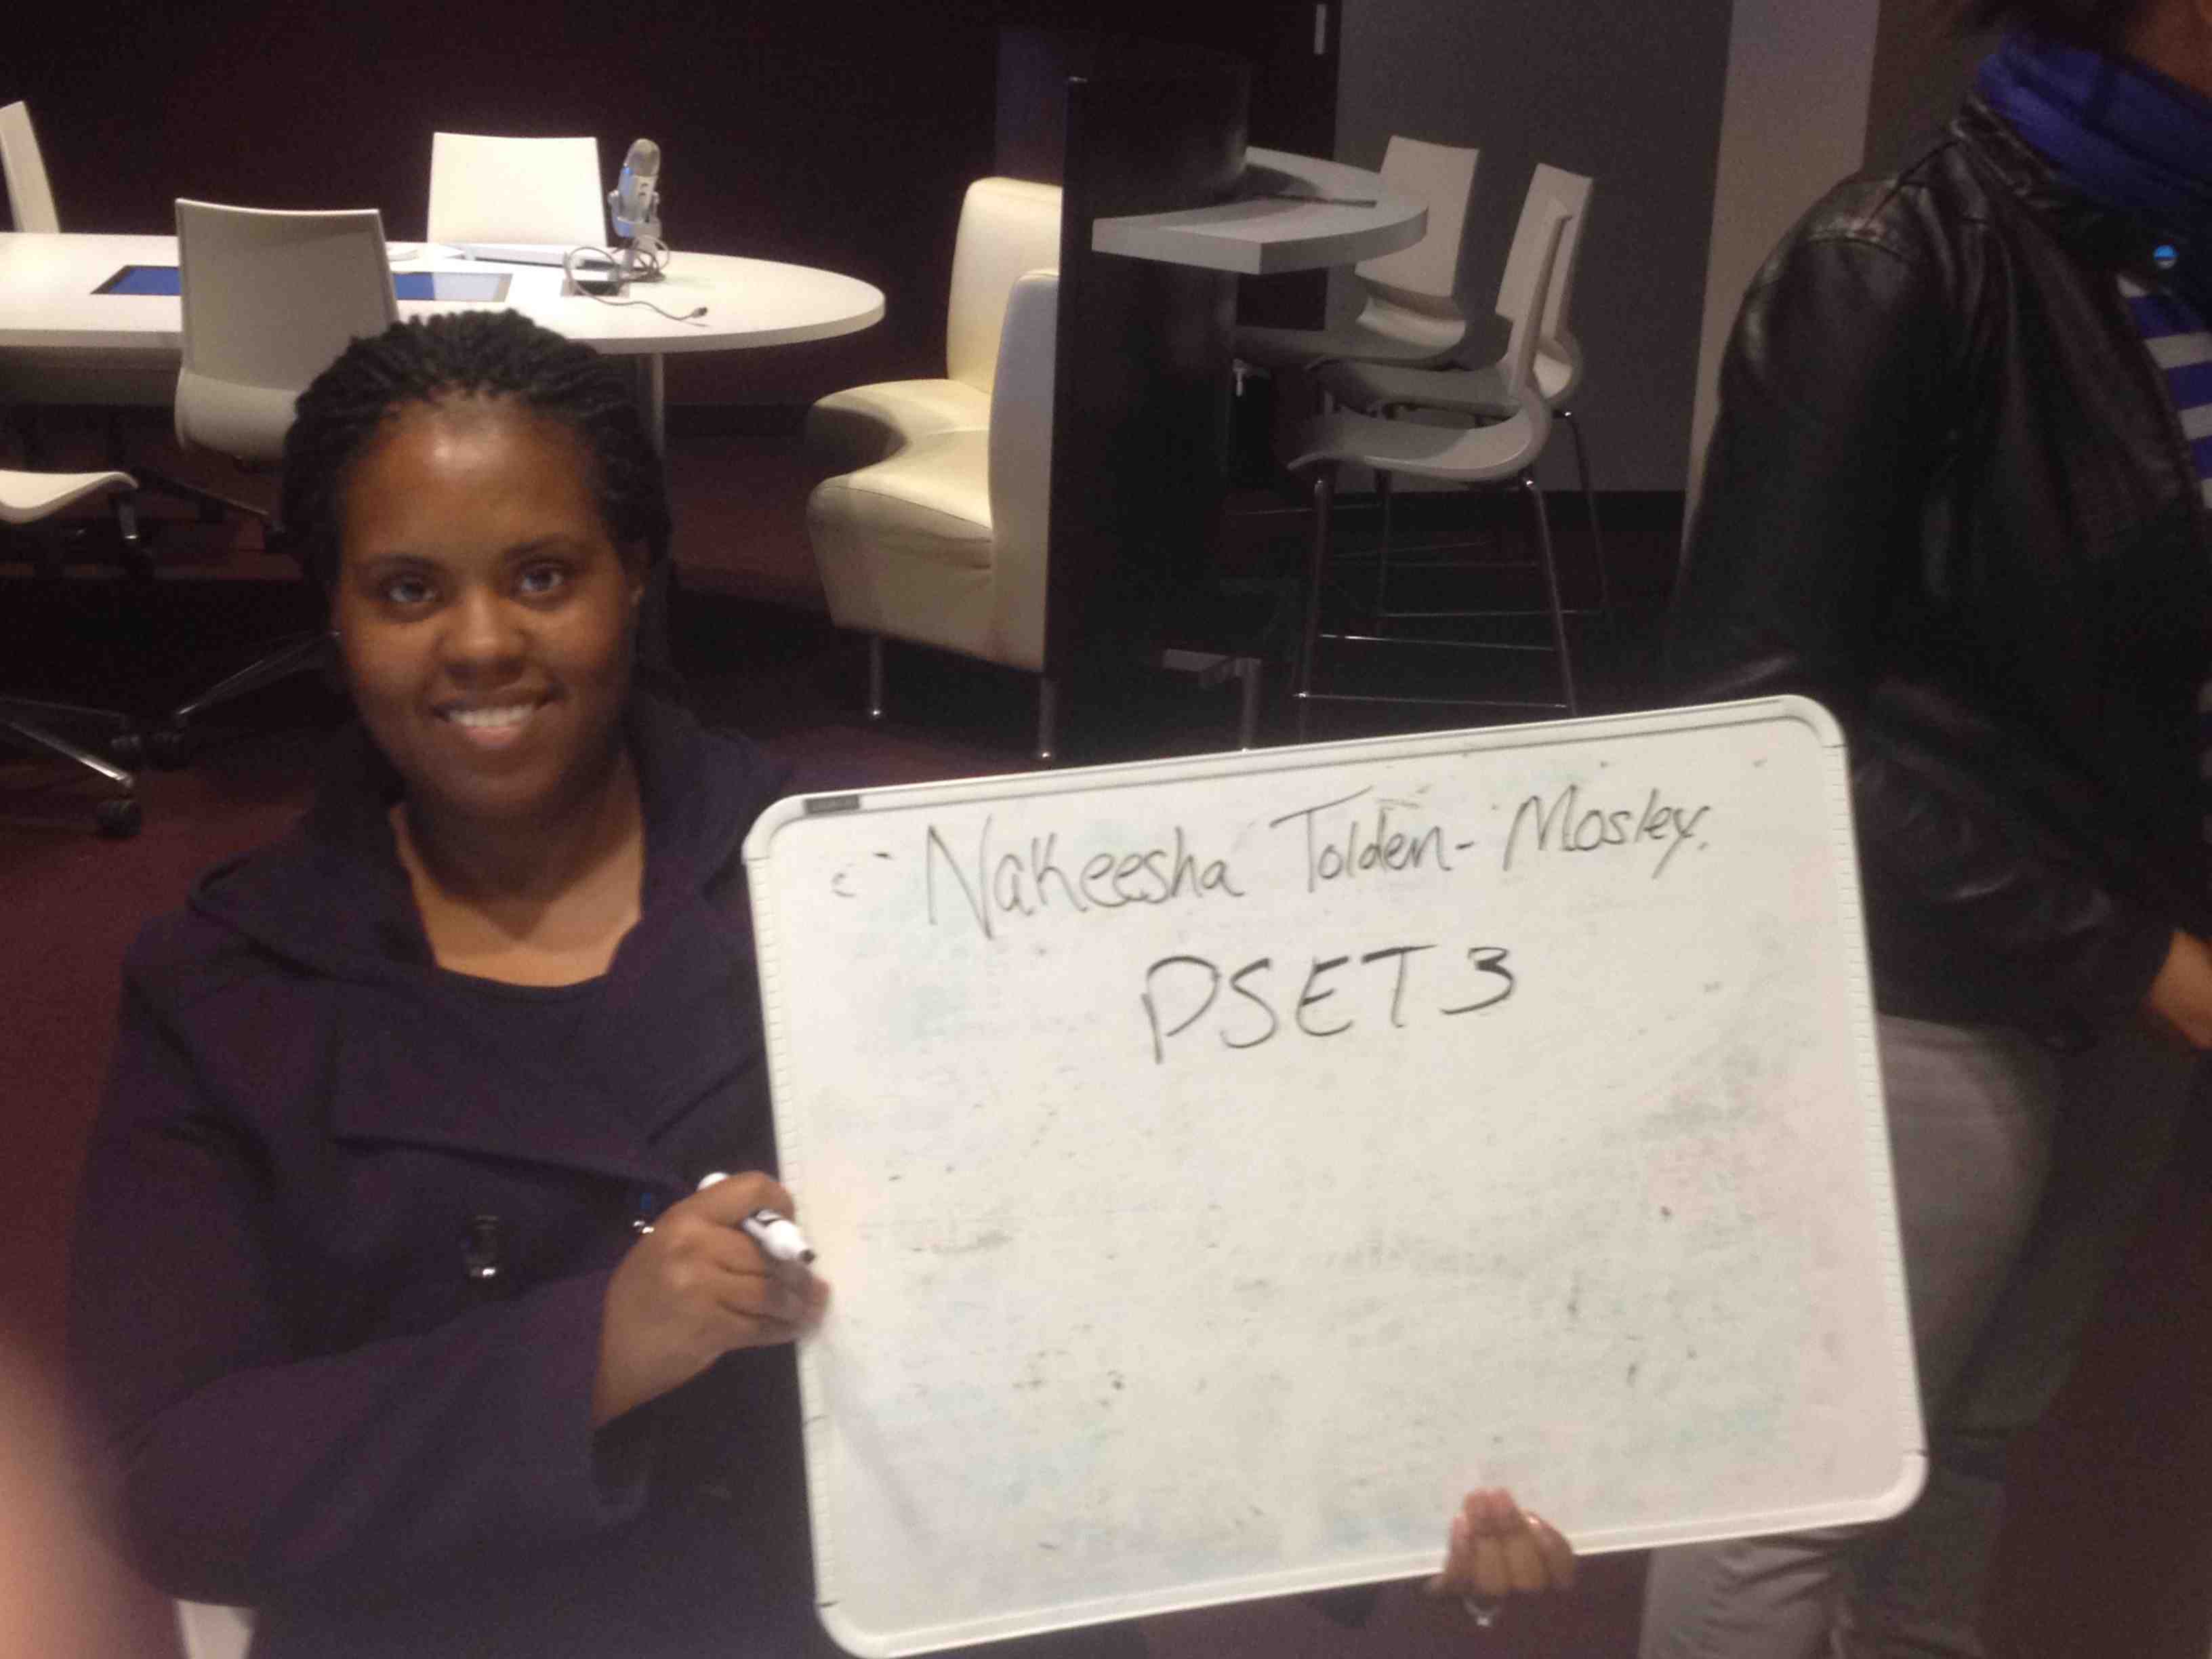 Nakeesha Tolden-Mosley.
PSET 3